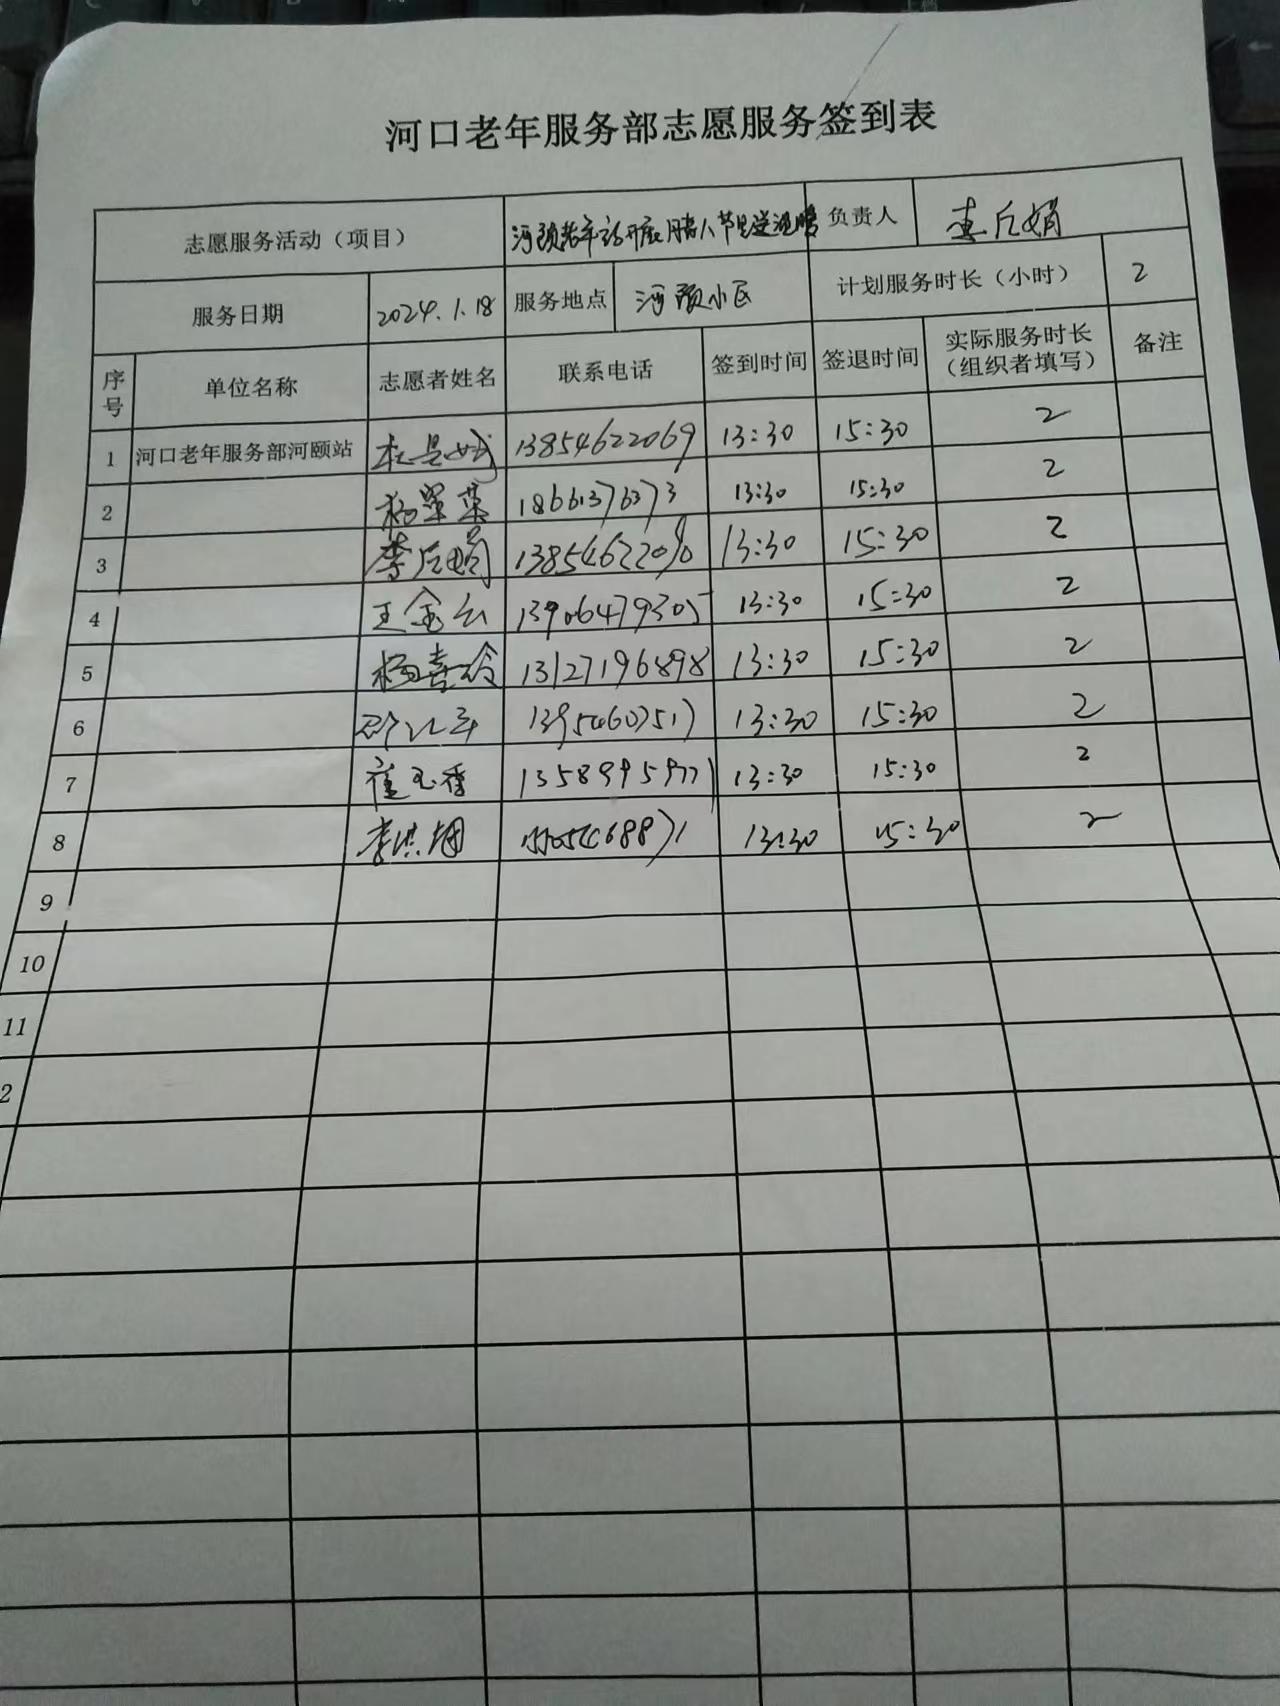 河口老年服务部志愿服务签到表
志愿服务活动（项目） 河颐老年站开展 节 送温暖 负责人
服务日期 2024.1.18 服务地点 河颐小区 计划服务时长（小时） 2
序号 单位名称 志愿者姓名 联系电话 签到时间 签退时间 实际服务时长（组织者填写） 备注
1 河口老年服务部河颐站 13854622069 13:30 15:30 2
2 杨翠菜 18661376373 13:30 15:30 2
3 13:30 15:30 2
4 王金云 13906479305 13:30 15:30 2
5 杨喜玲 13127196898 13:30 15:30 2
6 13954607517 13:30 15:30 2
7 崔玉香 13:30 15:30 2
8 13:30 15:30 2
9
10
11
2